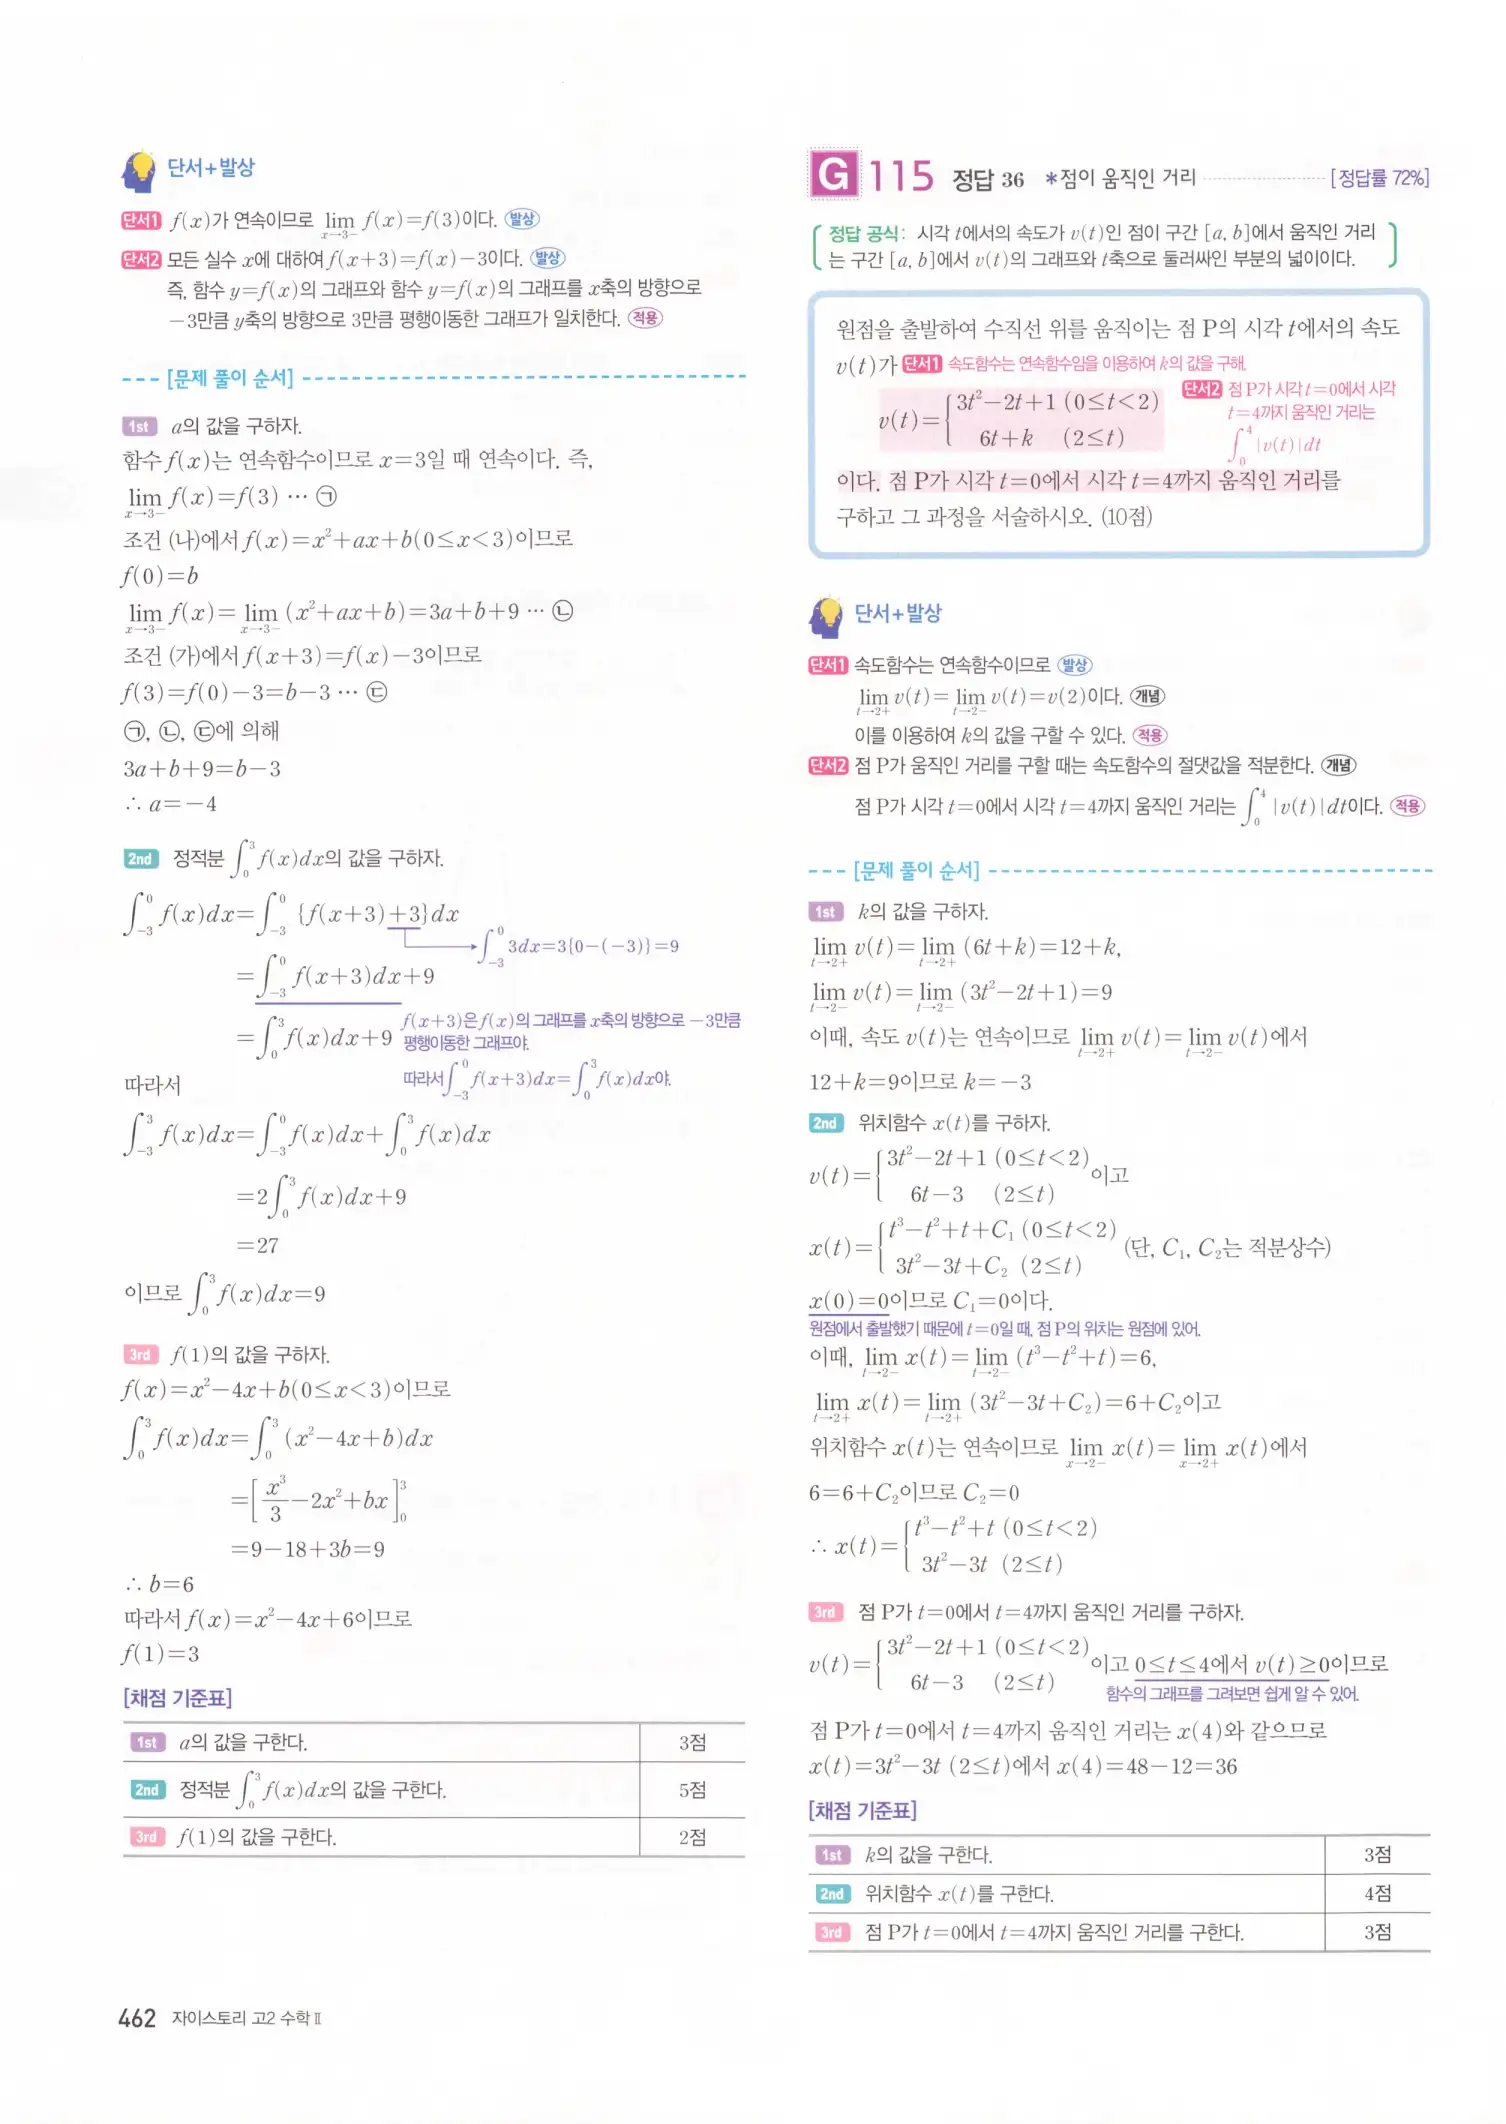 단서+발상
단서1 f(x)가 연속이므로 lim_{x→3-} f(x)=f(3)이다. 발상
단서2 모든 실수 x에 대하여 f(x+3)=f(x)-3이다. 발상
즉, 함수 y=f(x)의 그래프와 함수 y=f(x)의 그래프를 x축의 방향으로
-3만큼 y축의 방향으로 3만큼 평행이동한 그래프가 일치한다. 적용
--- [문제 풀이 순서] ---
1st a의 값을 구하자.
함수 f(x)는 연속함수이므로 x=3일 때 연속이다. 즉,
lim_{x→3-} f(x)=f(3) … ㉠
조건 (나)에서 f(x)=x²+ax+b(0≤x<3)이므로
f(0)=b
lim_{x→3-} f(x)= lim_{x→3-} (x²+ax+b)=3a+b+9 … ㉡
조건 (가)에서 f(x+3)=f(x)-3이므로
f(3)=f(0)-3=b-3 … ㉢
㉠, ㉡, ㉢에 의해
3a+b+9=b-3
∴ a=-4
2nd 정적분 ∫_0^3 f(x)dx의 값을 구하자.
∫_{-3}^0 f(x)dx=∫_{-3}^0 {f(x+3)+3}dx
∫_{-3}^0 3dx=3{0-(-3)}=9
=∫_{-3}^0 f(x+3)dx+9
=∫_0^3 f(x)dx+9
f(x+3)은 f(x)의 그래프를 x축의 방향으로 -3만큼
평행이동한 그래프야.
따라서 ∫_{-3}^0 f(x+3)dx=∫_0^3 f(x)dx야.
따라서
∫_{-3}^3 f(x)dx=∫_{-3}^0 f(x)dx+∫_0^3 f(x)dx
=2∫_0^3 f(x)dx+9
=27
이므로 ∫_0^3 f(x)dx=9
3rd f(1)의 값을 구하자.
f(x)=x²-4x+b(0≤x<3)이므로
∫_0^3 f(x)dx=∫_0^3 (x²-4x+b)dx
=[x³/3-2x²+bx]_0^3
=9-18+3b=9
∴ b=6
따라서 f(x)=x²-4x+6이므로
f(1)=3
[채점 기준표]
1st a의 값을 구한다. 3점
2nd 정적분 ∫_0^3 f(x)dx의 값을 구한다. 5점
3rd f(1)의 값을 구한다. 2점
G 115 정답 36 *점이 움직인 거리 [정답률 72%]
정답 공식: 시각 t에서의 속도가 v(t)인 점이 구간 [a, b]에서 움직인 거리
는 구간 [a, b]에서 v(t)의 그래프와 t축으로 둘러싸인 부분의 넓이이다.
원점을 출발하여 수직선 위를 움직이는 점 P의 시각 t에서의 속도
v(t)가 단서1 속도함수는 연속함수임을 이용하여 k의 값을 구해.
v(t)={3t²-2t+1 (0≤t<2)
6t+k (2≤t)
단서2 점 P가 시각 t=0에서 시각
t=4까지 움직인 거리는
∫_0^4 |v(t)|dt
이다. 점 P가 시각 t=0에서 시각 t=4까지 움직인 거리를
구하고 그 과정을 서술하시오. (10점)
단서+발상
단서1 속도함수는 연속함수이므로 발상
lim_{t→2+} v(t)= lim_{t→2-} v(t)=v(2)이다. 개념
이를 이용하여 k의 값을 구할 수 있다. 적용
단서2 점 P가 움직인 거리를 구할 때는 속도함수의 절댓값을 적분한다. 개념
점 P가 시각 t=0에서 시각 t=4까지 움직인 거리는 ∫_0^4 |v(t)|dt이다. 적용
--- [문제 풀이 순서] ---
1st k의 값을 구하자.
lim_{t→2+} v(t)= lim_{t→2+} (6t+k)=12+k,
lim_{t→2-} v(t)= lim_{t→2-} (3t²-2t+1)=9
이때, 속도 v(t)는 연속이므로 lim_{t→2+} v(t)= lim_{t→2-} v(t)에서
12+k=9이므로 k=-3
2nd 위치함수 x(t)를 구하자.
v(t)={3t²-2t+1 (0≤t<2)
6t-3 (2≤t) 이고
x(t)={t³-t²+t+C₁ (0≤t<2)
3t²-3t+C₂ (2≤t) (단, C₁, C₂는 적분상수)
x(0)=0이므로 C₁=0이다.
원점에서 출발했기 때문에 t=0일 때, 점 P의 위치는 원점에 있어.
이때, lim_{t→2-} x(t)= lim_{t→2-} (t³-t²+t)=6,
lim_{t→2+} x(t)= lim_{t→2+} (3t²-3t+C₂)=6+C₂이고
위치함수 x(t)는 연속이므로 lim_{x→2-} x(t)= lim_{x→2+} x(t)에서
6=6+C₂이므로 C₂=0
∴ x(t)={t³-t²+t (0≤t<2)
3t²-3t (2≤t)
3rd 점 P가 t=0에서 t=4까지 움직인 거리를 구하자.
v(t)={3t²-2t+1 (0≤t<2)
6t-3 (2≤t) 이고 0≤t≤4에서 v(t)≥0이므로
함수의 그래프를 그려보면 쉽게 알 수 있어.
점 P가 t=0에서 t=4까지 움직인 거리는 x(4)와 같으므로
x(t)=3t²-3t (2≤t)에서 x(4)=48-12=36
[채점 기준표]
1st k의 값을 구한다. 3점
2nd 위치함수 x(t)를 구한다. 4점
3rd 점 P가 t=0에서 t=4까지 움직인 거리를 구한다. 3점
462 자이스토리 고2 수학 II